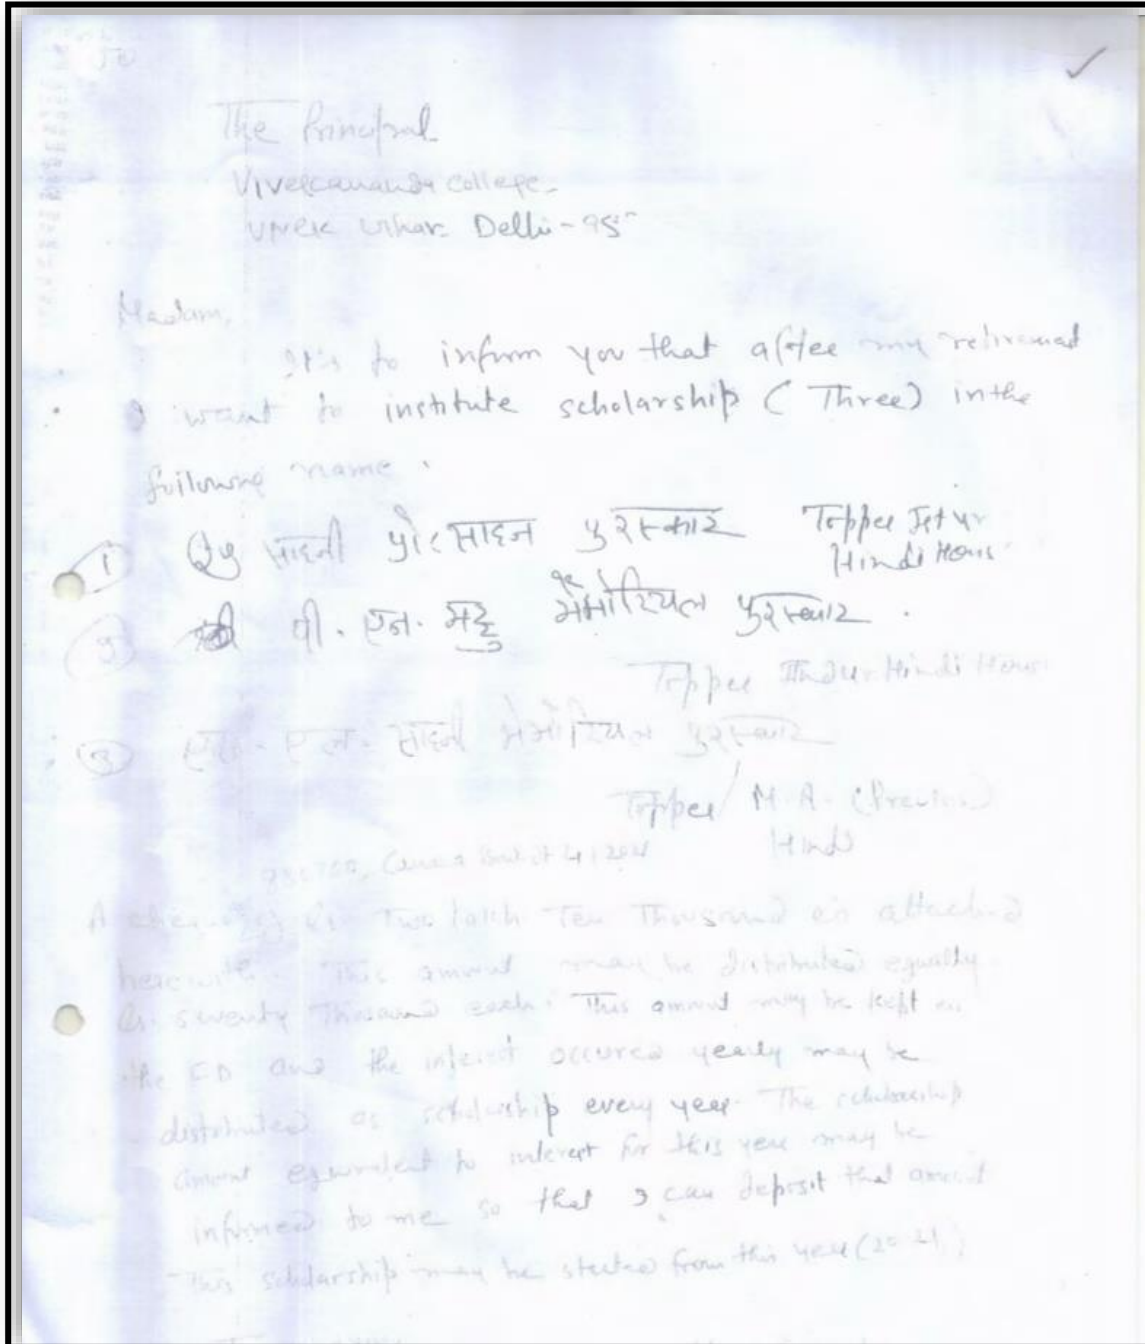 50
The Principal
Vivekananda College-
Vivek Vihar. Delhi-95
Madam,
It is to inform you that after my retirement
I want to institute scholarship (Three) in the
following name.
1 साहनी प्रोत्साहन पुरस्कार Topper Ist yr
Hindi Hons
2 पी. एन. मट्टू मेमोरियल पुरस्कार.
Topper IInd yr Hindi Hons
3 एन. साहनी मेमोरियल पुरस्कार
Topper / M.A. (Previous)
Hindi
Canara
A Two lakh Ten Thousand is attached
herewith. This amount may be distributed equally
seventy Thousand each. This amount may be kept in
the FD and the interest occured yearly may be
distributed as scholarship every year. The scholarship
amount equivalent to interest for this year may be
informed to me so that I can deposit that amount
This scholarship may be started from this year